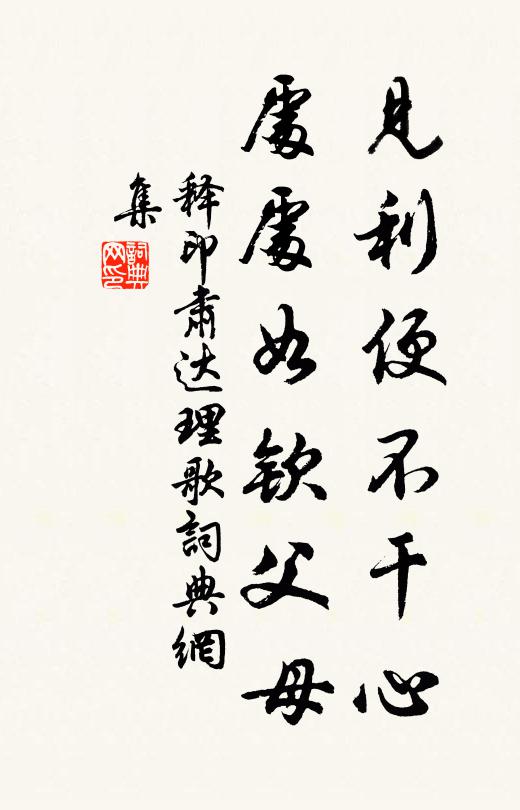 見利便不干心
處處如欽父母
释印肅达理歌詞典網
集
詞典
网印